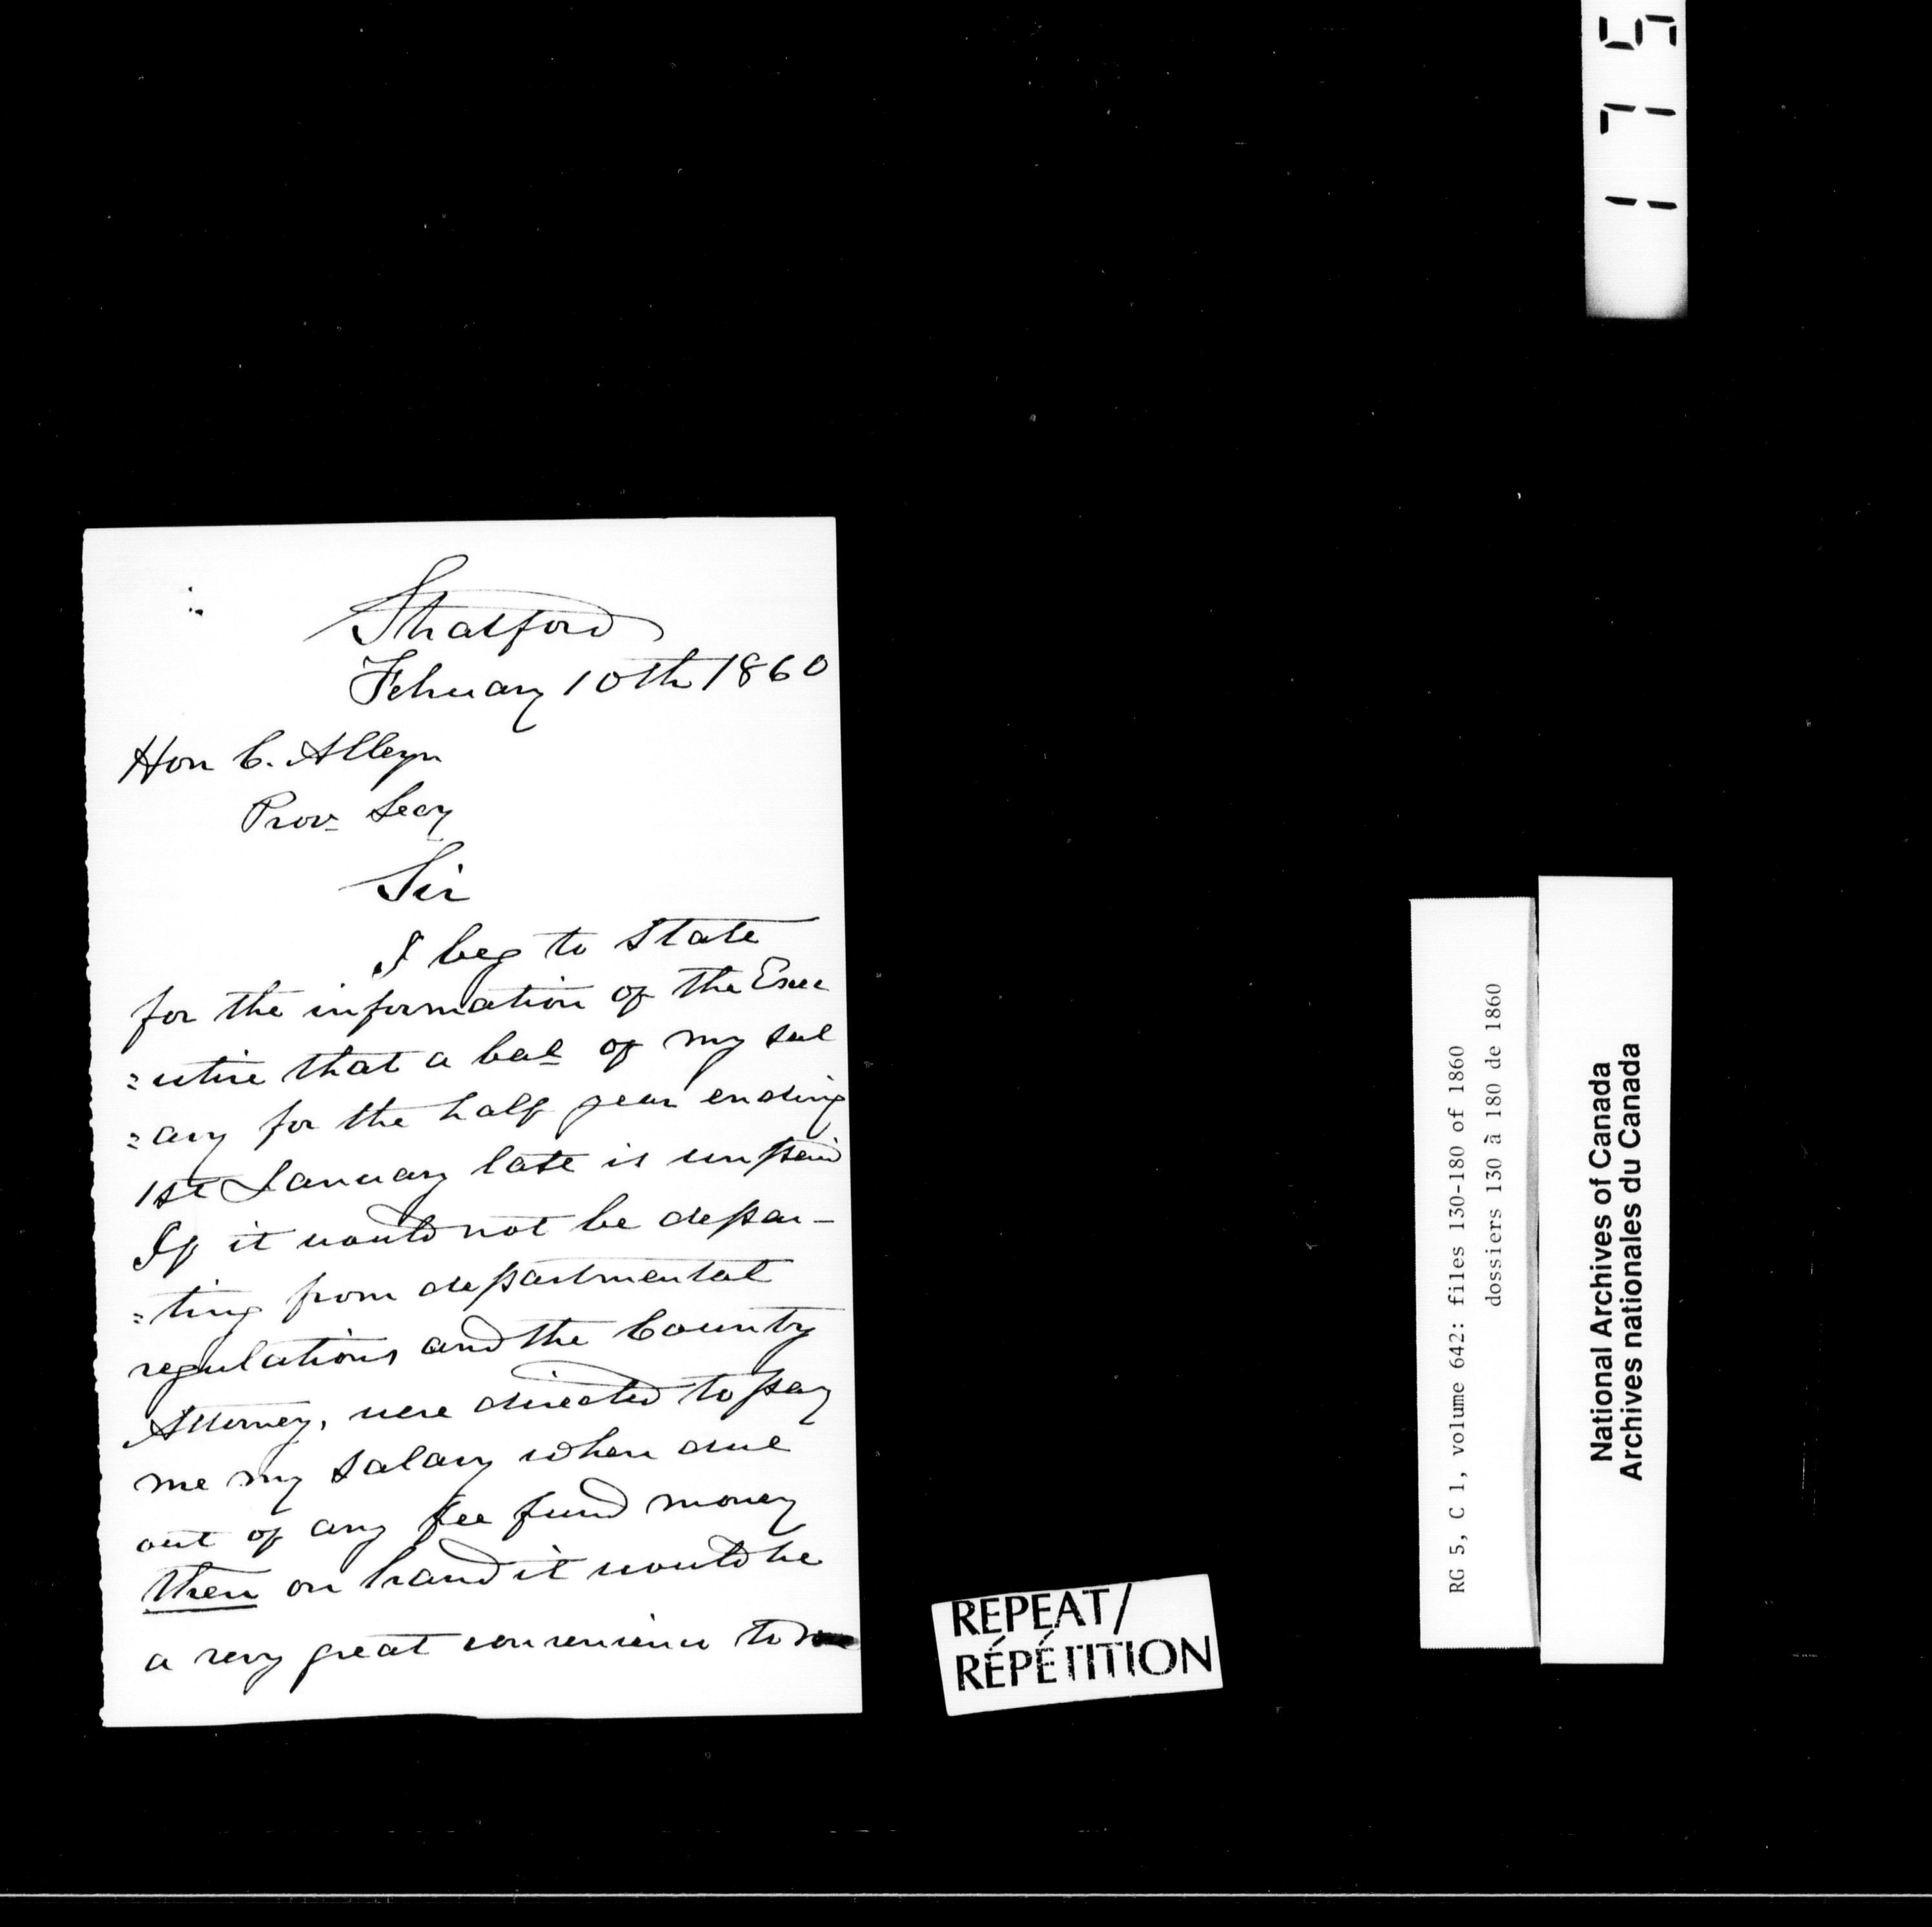 Stratford
February 10th 1860
Hon C. Alleyn
Prov. Secy
Sir
I beg to State
for the information of the Exec
=utive that a bal of my sal
=ary for the half year ending
1st January late is unpaid
If it would not be depar-
=ting from departmental
regulations and the County
Attorney, were directed to pay
me my salary when due
out of any fee fund money
then on hand it would be
a very great convenience to me
REPEAT/
RÉPÉTITION
RG 5, C 1, volume 642: files 130-180 of 1860
dossiers 130 à 180 de 1860
National Archives of Canada
Archives nationales du Canada
1175